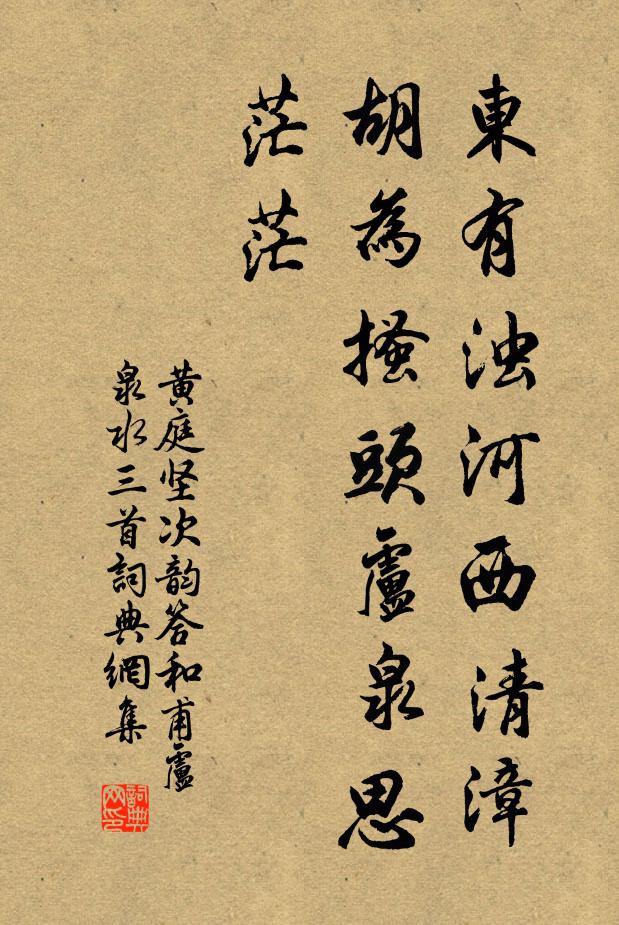 東有浊河西清漳
胡為搔頭盧泉思
茫茫
黄庭坚次韵答和甫盧
泉水三首詞典網集
詞典网印